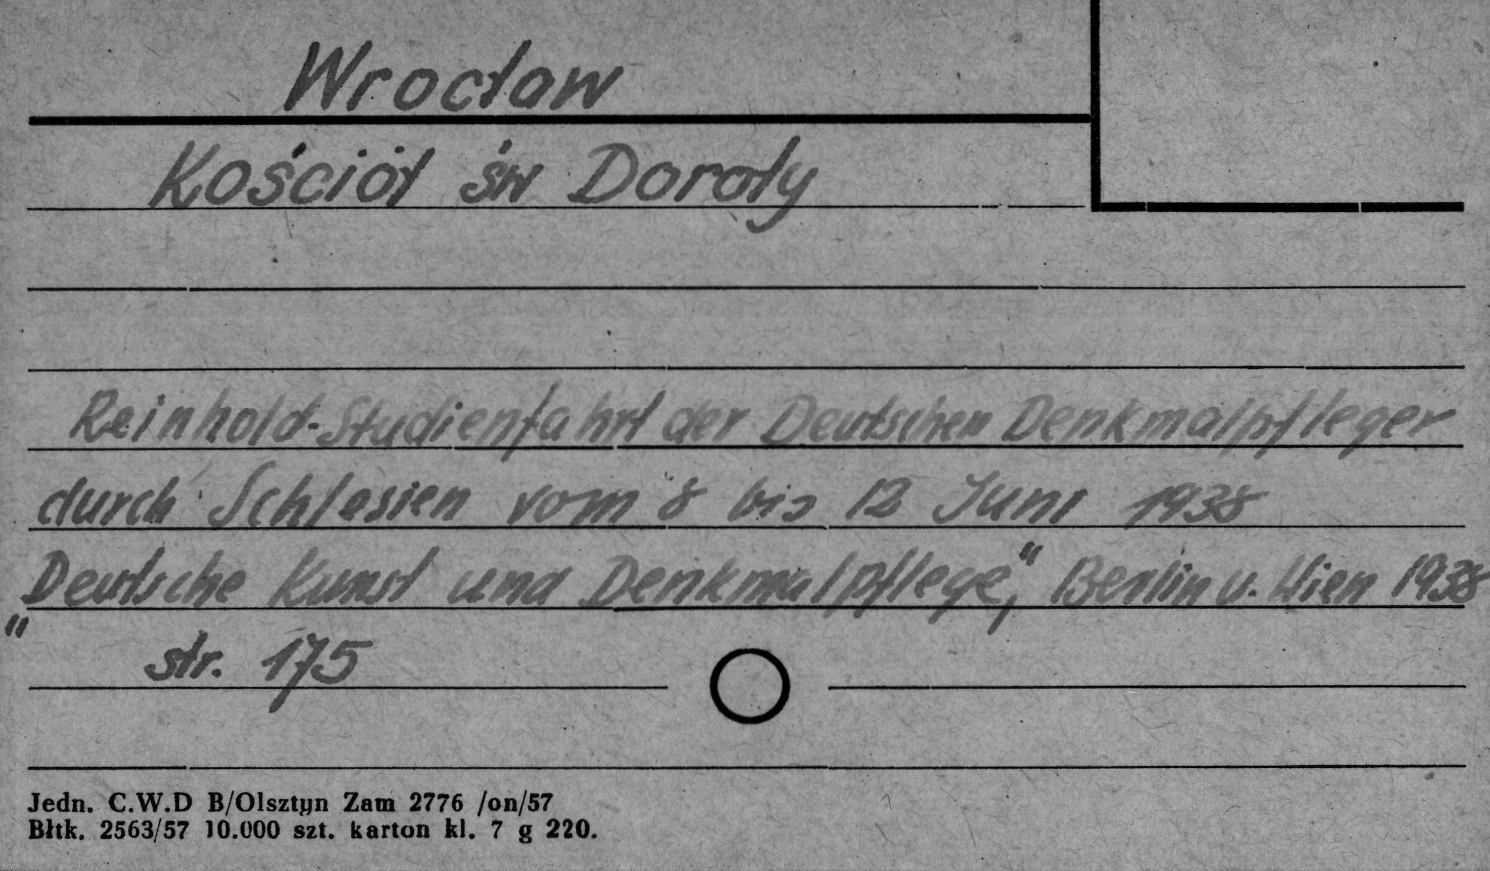 Wrocław
Kościół św Doroty
Reinhold-Studienfahrt der Deutschen Denkmalpfleger
durch Schlesien vom 8 bis 12 Juni 1938
"Deutsche Kunst und Denkmalpflege," Berlin u. Wien 1938
str. 175
Jedn. C.W.D B/Olsztyn Zam 2776 /on/57
Błtk. 2563/57 10.000 szt. karton kl. 7 g 220.